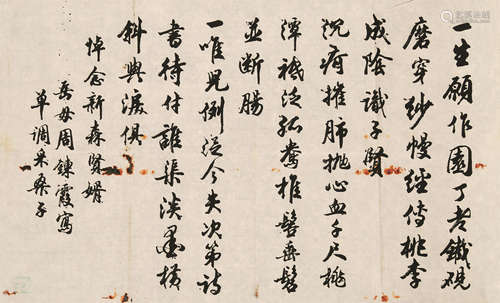 一生願作園丁老鐵硯
磨穿紗幔經傳桃李
成陰識子賢
沉疴摧肺挑心血千尺桃
潭祗泛孤鴦椎髻垂髫
並斷腸
一唯見例從今失次第詩
書待付誰渠淡墨橫
斜與淚俱
悼念新森賢婿
岳母周鍊霞寫
單调采桑子